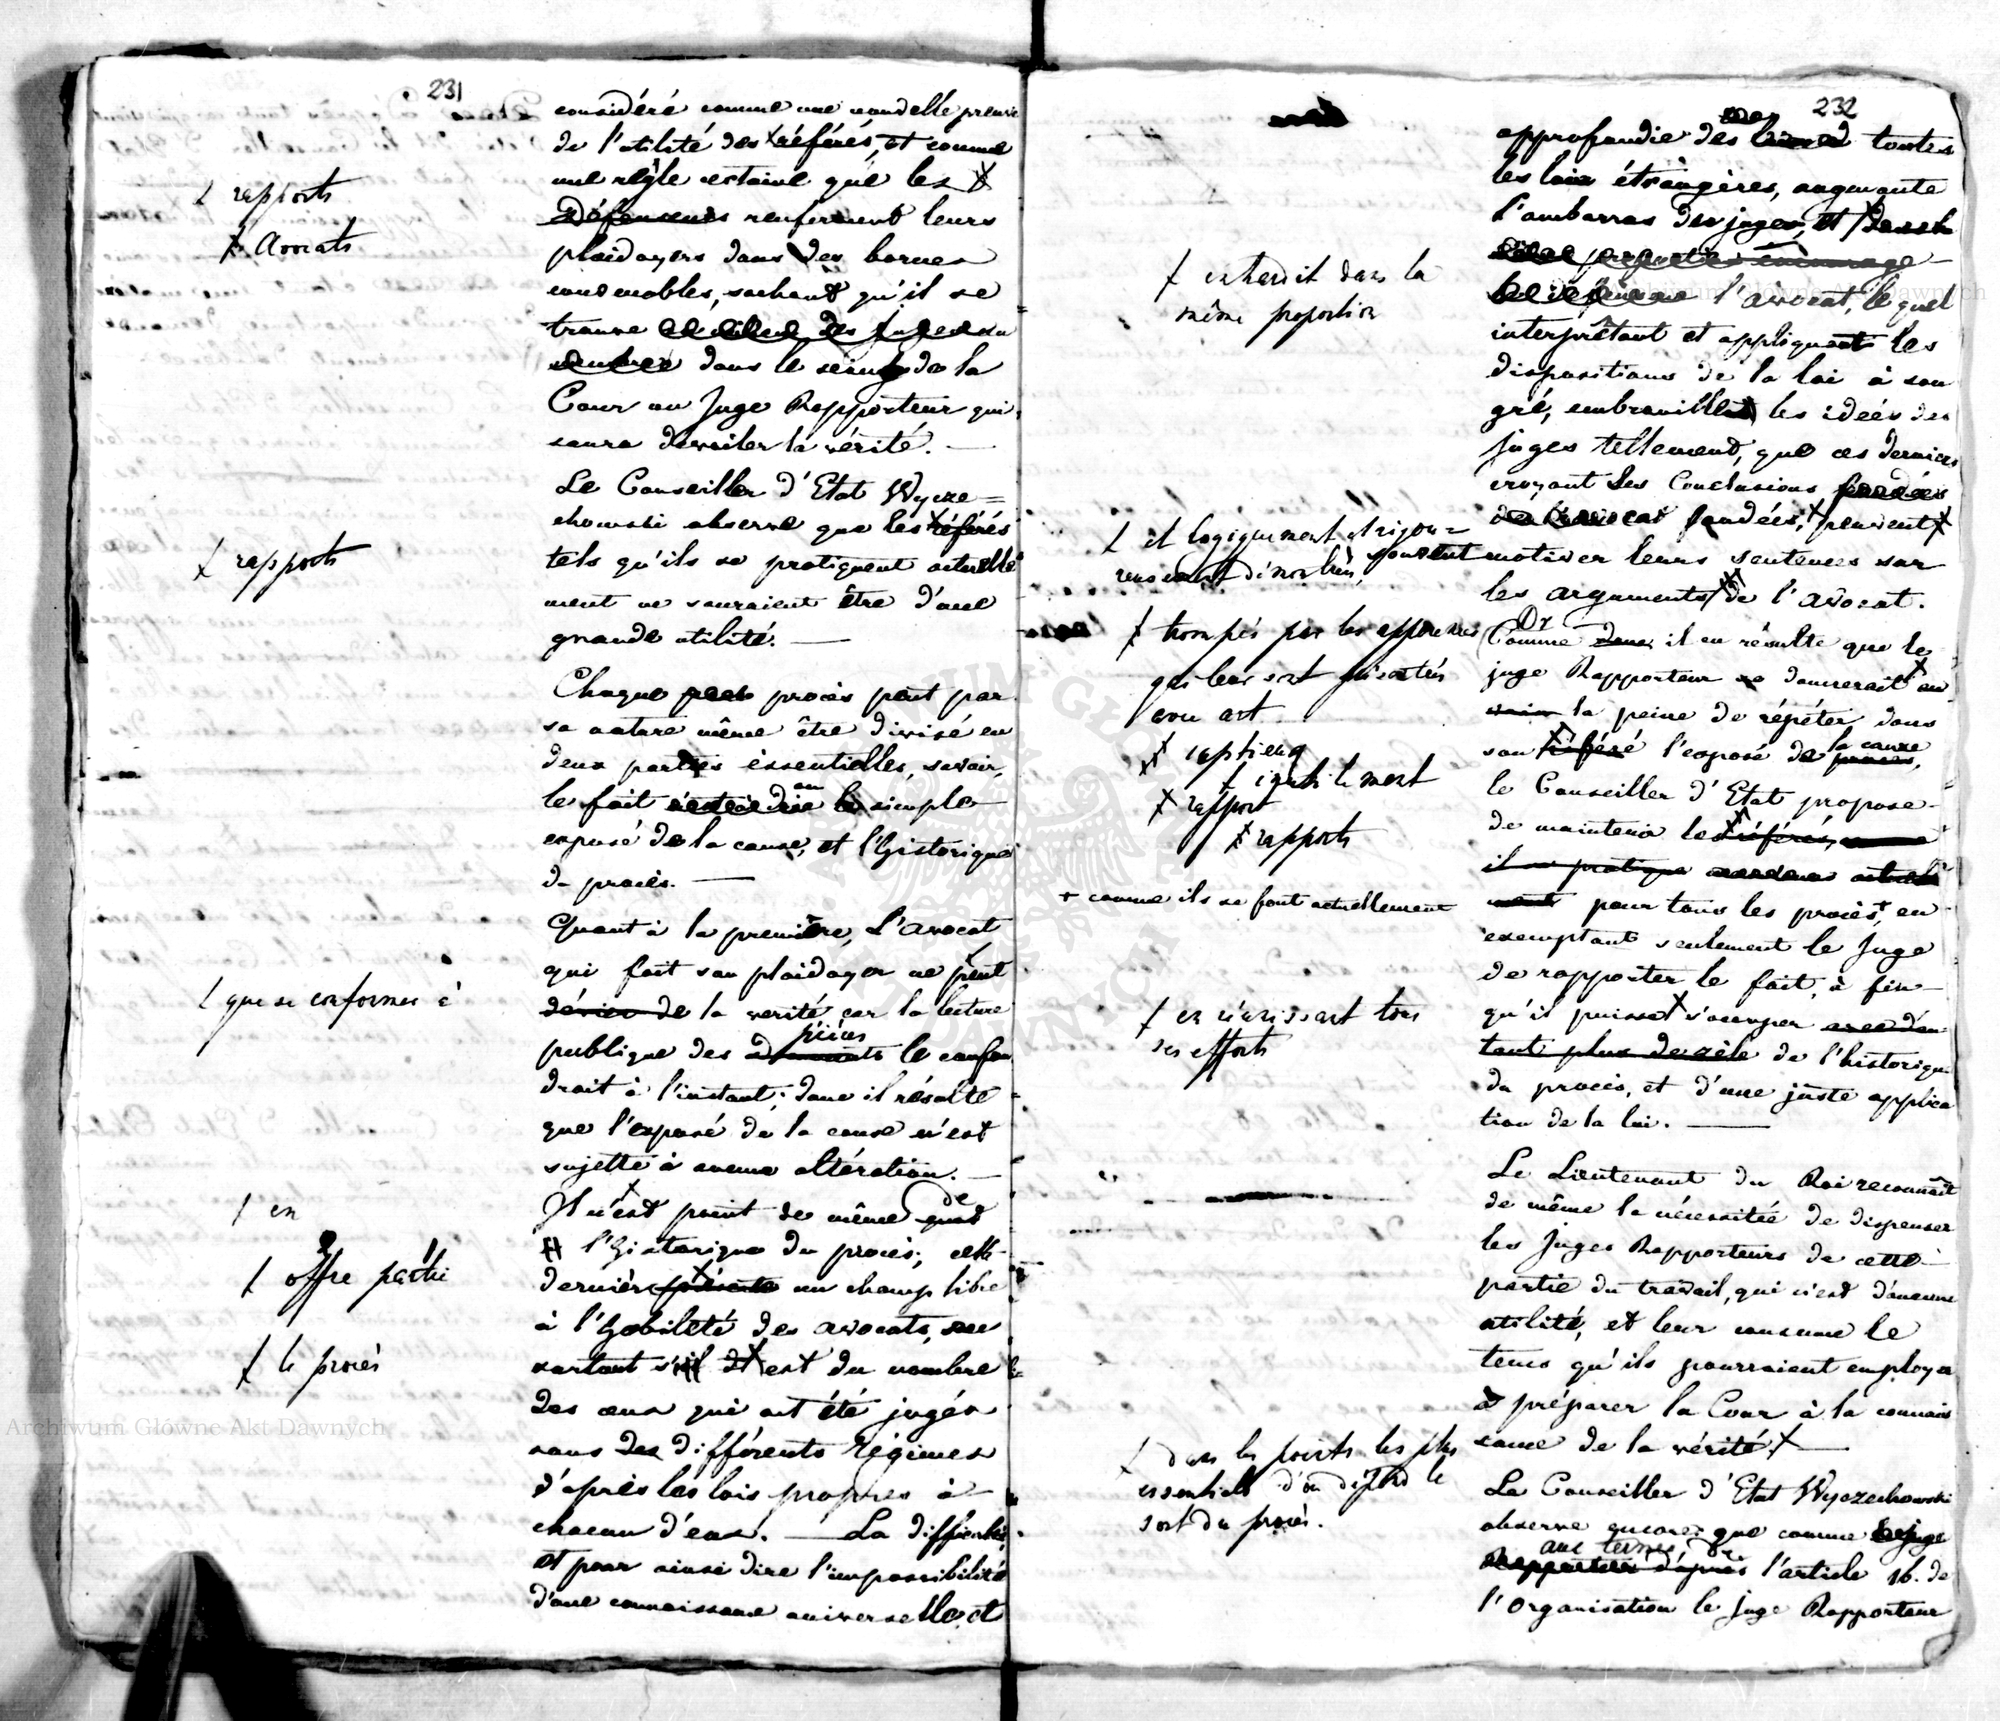 231
considéré comme une nouvelle preuve
de l'utilité des référés, et comme
une règle certaine que les
Défenseurs renferment leurs
plaidoyers dans des bornes
convenables, sachant qu'il se
trouve
dans le sein de la
Cour un Juge Rapporteur qui
saura devoiler la vérité. —
Le Conseiller d'Etat Wycze=
chowski observe que les référés
tels qu'ils se pratiquent actuelle
ment ne sauraient être d'une
grande utilité. —
Chaque procès peut par
sa nature même être divisé en
deux parties essentielles, savoir,
le fait ou le simple
exposé de la cause, et l'historique
du procès. —
Quant à la première, l'avocat
qui fait son plaidoyer ne peut
dévier de la verité, car la lecture
publique des pièces le confon
drait à l'instant; donc il résulte
que l'exposé de la cause n'est
sujette à aucune altération. —
Il n'est point de même de
l'historique du procès; cette
dernière présente un champ libre
à l'habileté des avocats,
surtout s'il est du nombre
des ceux qui ont été jugés
sous des différents régimes
d'après les lois propres à
chacun d'eux. — La difficulté,
et pour ainsi dire l'impossibilité
d'une connaissance universelle, et
rapports
Avocats
rapports
que se conformer à
en
offre partie
le procès
232
approfondie des toutes
les loix étrangères, augmente
l'embarras des juges, et
l'avocat, lequel
interprétant et appliquant les
dispositions de la loi à son
gré, embrouille les idées des
juges tellement, que ces derniers
croyant les Conclusions
fondées, peuvent
souvent motiver leurs sentences sur
les arguments de l'avocat.
Comme Or il en résulte que le
juge Rapporteur se donnerait en
vain la peine de répéter dans
son référé l'exposé de la cause,
le Conseiller d'Etat propose
de maintenir les référés,
il se pratique
pour tous les procès, en
exemptant seulement le Juge
de rapporter le fait, à fin
qu'il puisse s'occuper avec d'au
tant plus de zèle de l'historique
du procès, et d'une juste applica
tion de la loi. —
Le Lieutenant du Roi reconnaît
de même la nécessitée de dispenser
les Juges Rapporteurs de cette
partie du travail, qui n'est d'aucune
utilité, et leur consume le
tems qu'ils pourraient employer
à préparer la Cour à la connais
sance de la vérité. —
Le Conseiller d'Etat Wyczechowski
observe encore: que comme le juge
Rapporteur d'après aux termes de l'article 16. de
l'Organisation le juge Rapporteur
interdit dans la
même proportion
et logiquement et rigou=
reusement démontrées,
trompés par les apparences
qui leur sont présentés
avec art
captieux
inutilement
rapport
rapports
+ comme ils se font actuellement
en réunissant tous
ses efforts
dans les points les plus
essentiels d'où dépend le
sort du procès.
Archiwum Główne Akt Dawnych